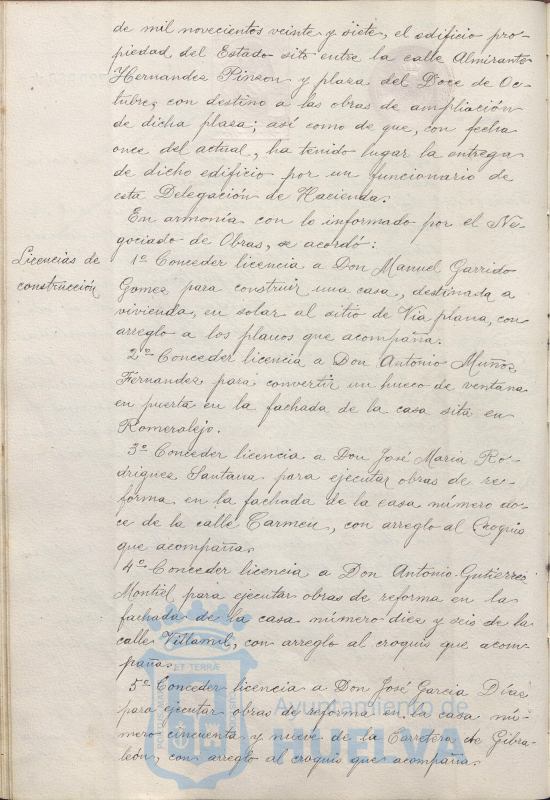 de mil novecientos veinte y siete, el edificio pro-
piedad del Estado sito entre la calle Almirante
Hernandez Pinzon y plaza del Doce de Oc-
tubre, con destino a las obras de ampliación
de dicha plaza; así como de que, con fecha
once del actual, ha tenido lugar la entrega
de dicho edificio por un funcionario de
esta Delegación de Hacienda.
En armonía con lo informado por el Ne-
gociado de Obras, se acordó:
Licencias de
construcción
1º Conceder licencia a Don Manuel Garrido
Gomez para construir una casa, destinada a
vivienda, en solar al sitio de Via plana, con
arreglo a los planos que acompaña.
2º Conceder licencia a Don Antonio Muñoz
Fernandez para convertir un hueco de ventana
en puerta en la fachada de la casa sita en
Romeralejo.
3º Conceder licencia a Don José Maria Ro-
driguez Santana para ejecutar obras de re-
forma en la fachada de la casa número do-
ce de la calle Carmen, con arreglo al Croquis
que acompaña.
4º Conceder licencia a Don Antonio Gutierrez
Montiel para ejecutar obras de reforma en la
fachada de la casa número diez y seis de la
calle Villamil, con arreglo al croquis que acom-
paña.
5º Conceder licencia a Don José Garcia Díaz
para ejecutar obras de reforma en la casa nú-
mero cincuenta y nueve de la Carretera de Gibra-
león, con arreglo al croquis que acompaña.
ET TERRÆ
Ayuntamiento de
HUELVA